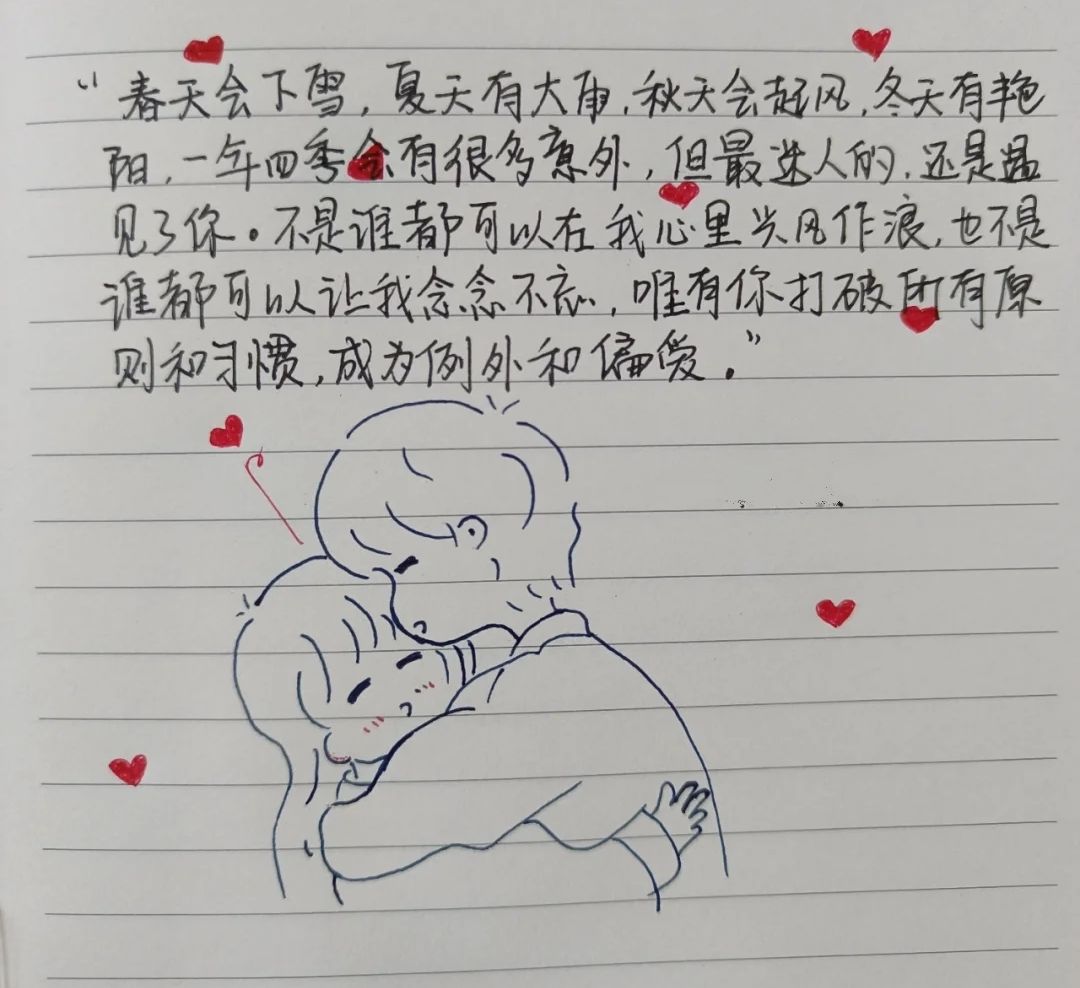 “春天会下雪，夏天有大雨，秋天会起风，冬天有艳
阳，一年四季会有很多意外，但最迷人的，还是遇
见了你。不是谁都可以在我心里兴风作浪，也不是
谁都可以让我念念不忘，唯有你打破所有原
则和习惯，成为例外和偏爱。”